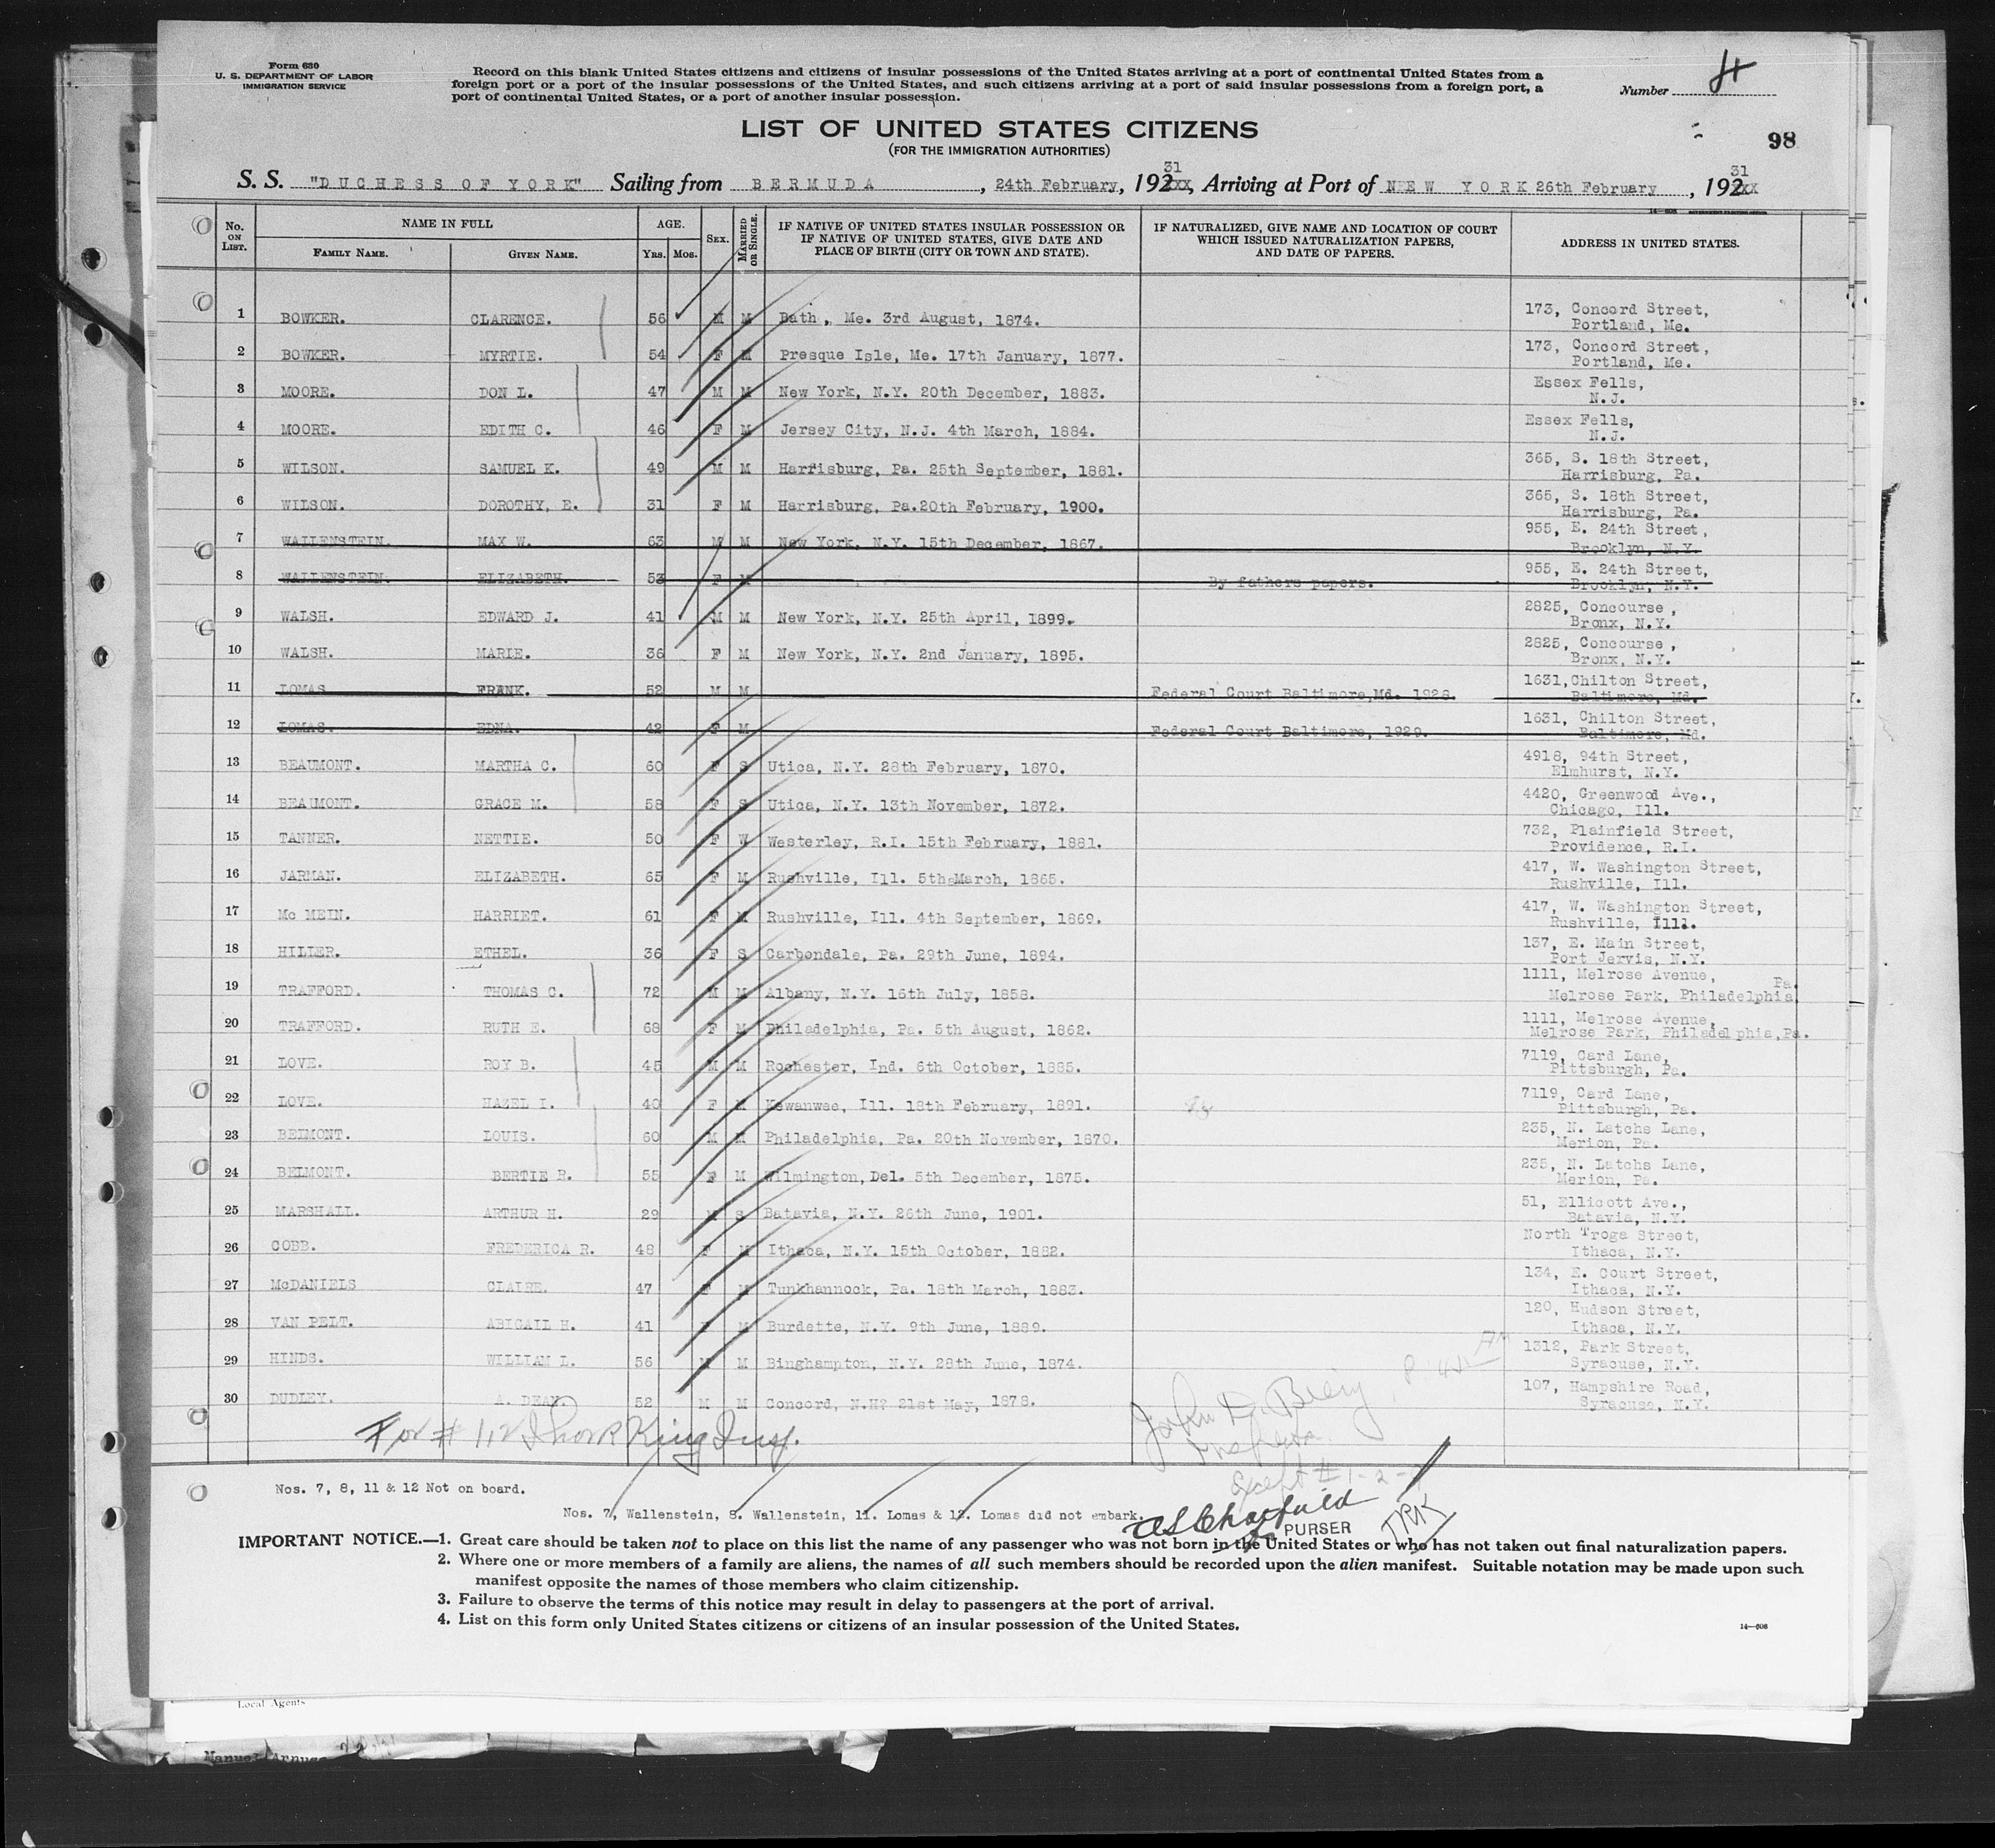 Form 630
U. S. DEPARTMENT OF LABOR
IMMIGRATION SERVICE
Record on this blank United States citizens and citizens of insular possessions of the United States arriving at a port of continental United States from a
foreign port or a port of the insular possessions of the United States, and such citizens arriving at a port of said insular possessions from a foreign port, a
port of continental United States, or a port of another insular possession.
Number 4
LIST OF UNITED STATES CITIZENS
(FOR THE IMMIGRATION AUTHORITIES)
98
S. S. "DUCHESS OF YORK" Sailing from BERMUDA, 24th February, 192xx 31, Arriving at Port of NEW YORK 26th February, 192xx 31
14—608
No. ON LIST. NAME IN FULL AGE. SEX. MARRIED OR SINGLE. IF NATIVE OF UNITED STATES INSULAR POSSESSION OR IF NATIVE OF UNITED STATES, GIVE DATE AND PLACE OF BIRTH (CITY OR TOWN AND STATE). IF NATURALIZED, GIVE NAME AND LOCATION OF COURT WHICH ISSUED NATURALIZATION PAPERS, AND DATE OF PAPERS. ADDRESS IN UNITED STATES.
FAMILY NAME. GIVEN NAME. YRS. MOS.
1 BOWKER. CLARENCE. 56 M M Bath, Me. 3rd August, 1874. 173, Concord Street, Portland, Me.
2 BOWKER. MYRTIE. 54 F M Presque Isle, Me. 17th January, 1877. 173, Concord Street, Portland, Me.
3 MOORE. DON L. 47 M M New York, N.Y. 20th December, 1883. Essex Fells, N.J.
4 MOORE. EDITH C. 46 F M Jersey City, N.J. 4th March, 1884. Essex Fells, N.J.
5 WILSON. SAMUEL K. 49 M M Harrisburg, Pa. 25th September, 1881. 365, S. 18th Street, Harrisburg, Pa.
6 WILSON. DOROTHY, E. 31 F M Harrisburg, Pa.20th February, 1900. 365, S. 18th Street, Harrisburg, Pa.
7 WALLENSTEIN. MAX W. 63 M M New York, N.Y. 15th December, 1867. 955, E. 24th Street, Brooklyn, N.Y.
8 WALLENSTEIN. ELIZABETH. 53 F M By fathers papers. 955, E. 24th Street, Brooklyn, N.Y.
9 WALSH. EDWARD J. 41 M M New York, N.Y. 25th April, 1899. 2825, Concourse, Bronx, N.Y.
10 WALSH. MARIE. 36 F M New York, N.Y. 2nd January, 1895. 2825, Concourse, Bronx, N.Y.
11 LOMAS FRANK. 52 M M Federal Court Baltimore,Md. 1928. 1631,Chilton Street, Baltimore, Md.
12 LOMAS. EDNA. 42 F M Federal Court Baltimore, 1929. 1631, Chilton Street, Baltimore, Md.
13 BEAUMONT. MARTHA C. 60 F S Utica, N.Y. 28th February, 1870. 4918, 94th Street, Elmhurst, N.Y.
14 BEAUMONT. GRACE M. 58 F S Utica, N.Y. 13th November, 1872. 4420, Greenwood Ave., Chicago, Ill.
15 TANNER. NETTIE. 50 F W Westerley, R.I. 15th February, 1881. 732, Plainfield Street, Providence, R.I.
16 JARMAN. ELIZABETH. 65 F M Rushville, Ill. 5th March, 1865. 417, W. Washington Street, Rushville, Ill.
17 Mc MEIN. HARRIET. 61 F M Rushville, Ill. 4th September, 1869. 417, W. Washington Street, Rushville, Illl.
18 HILLER. ETHEL. 36 F S Carbondale, Pa. 29th June, 1894. 137, E. Main Street, Port Jervis, N.Y.
19 TRAFFORD. THOMAS C. 72 M M Albany, N.Y. 16th July, 1858. 1111, Melrose Avenue, Melrose Park, Philadelphia Pa.
20 TRAFFORD. RUTH E. 68 F M Philadelphia, Pa. 5th August, 1862. 1111, Melrose Avenue, Melrose Park, Philadelphia,Pa.
21 LOVE. ROY B. 45 M M Rochester, Ind. 6th October, 1885. 7119, Card Lane, Pittsburgh, Pa.
22 LOVE. HAZEL I. 40 F M Kewanwee, Ill. 18th February, 1891. 7119, Card Lane, Pittsburgh, Pa.
23 BELMONT. LOUIS. 60 M M Philadelphia, Pa. 20th November, 1870. 235, N. Latchs Lane, Merion, Pa.
24 BELMONT. BERTIE R. 55 F M Wilmington, Del. 5th December, 1875. 235, N. Latchs Lane, Merion, Pa.
25 MARSHALL. ARTHUR H. 29 M S Batavia, N.Y. 26th June, 1901. 51, Ellicott Ave., Batavia, N.Y.
26 COBB. FREDERICA R. 48 F M Ithaca, N.Y. 15th October, 1882. North Troga Street, Ithaca, N.Y.
27 McDANIELS CLAIRE. 47 F M Tunkhannock, Pa. 18th March, 1883. 134, E. Court Street, Ithaca, N.Y.
28 VAN PELT. ABIGAIL H. 41 F M Burdette, N.Y. 9th June, 1889. 120, Hudson Street, Ithaca, N.Y.
29 HINDS. WILLIAM L. 56 M M Binghampton, N.Y. 28th June, 1874. 1312, Park Street, Syracuse, N.Y.
30 DUDLEY. A. DEAN. 52 M M Concord, N.H? 21st May, 1878. 107, Hampshire Road, Syracuse, N.Y.
For # 1,2 King Insp.
John D.
Except # 1-2-
Nos. 7, 8, 11 & 12 Not on board.
Nos. 7, Wallenstein, 8. Wallenstein, 11. Lomas & 12. Lomas did not embark.
PURSER
IMPORTANT NOTICE.—1. Great care should be taken not to place on this list the name of any passenger who was not born in the United States or who has not taken out final naturalization papers.
2. Where one or more members of a family are aliens, the names of all such members should be recorded upon the alien manifest. Suitable notation may be made upon such
manifest opposite the names of those members who claim citizenship.
3. Failure to observe the terms of this notice may result in delay to passengers at the port of arrival.
4. List on this form only United States citizens or citizens of an insular possession of the United States.
14—608
Local Agents